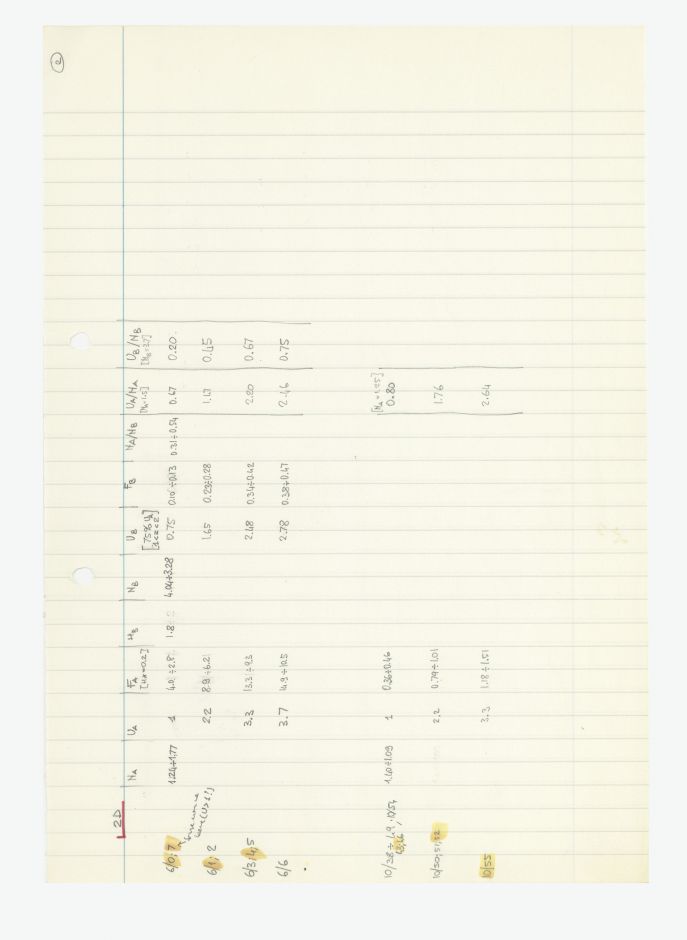 2
2D
N_A U_A F_A H_B N_B U_B F_B N_A/N_B U_A/N_A U_B/N_B
[75% U_A] [N_A=1.5] [N_B=3.7]
6/0; 7 1.24÷1.77 1 4.0÷2.8 1.8 4.04÷3.28 0.75 0.10÷0.13 0.31÷0.54 0.67 0.20
here (U>1!)
6/1; 2 2.2 8.9÷6.21 1.65 0.23÷0.28 1.47 0.45
6/3; 4; 5 3.3 13.3÷9.3 2.48 0.34÷0.42 2.20 0.67
6/6 3.7 14.9÷10.5 2.78 0.38÷0.47 2.46 0.75
[N_A=1.25]
10/28÷49; 10/54 1.10÷1.09 1 0.36÷0.46 0.80
10/50; 51; 52 2.2 0.79÷1.01 1.76
10/55 3.3 1.18÷1.51 2.64